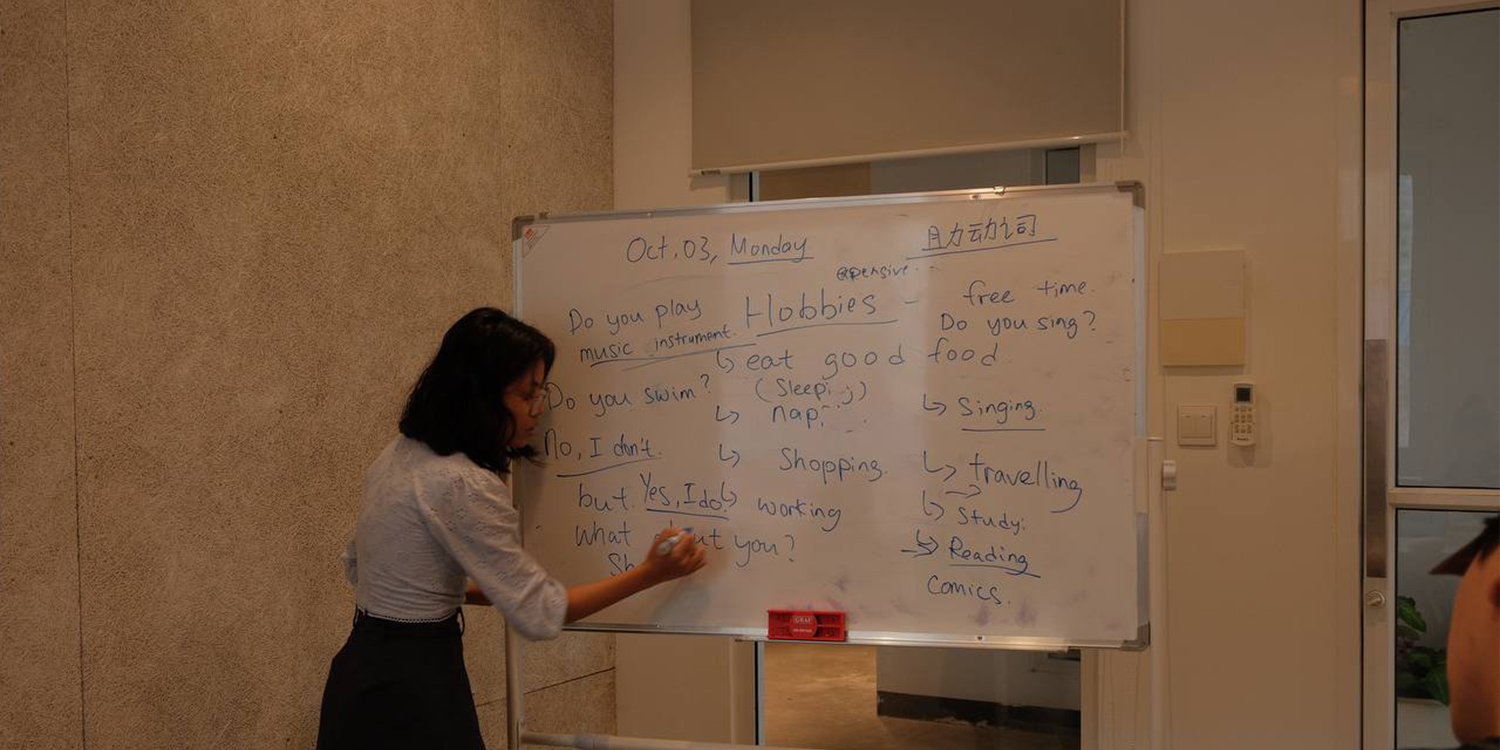 Oct. 03, Monday
expensive
Hobbies - free time.
Do you play
music instrument.
Do you sing?
↳ eat good food
Do you swim?
(Sleeping)
↳ nap.
↳ Singing.
No, I don't.
↳ Shopping.
↳ travelling
but Yes, I do.
↳ working
↳ Study.
What about you?
↳ Reading
Comics.
GRAF